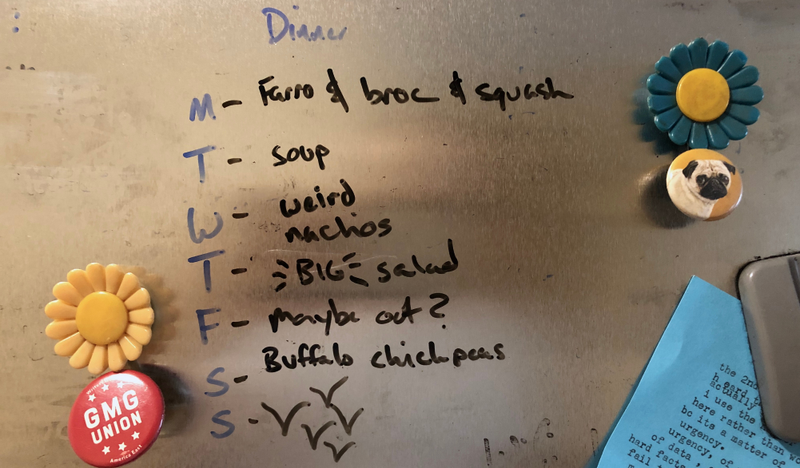 Dinner
M - Farro & broc & squash
T - soup
W - weird
nachos
T - BIG salad
F - Maybe out?
S - Buffalo chickpeas
S -
GMG
UNION
the 2nd
h eard
actually
i use the
here rather than
bc its a matter of
urgency.
urgency, of
of data
hard facts
fail